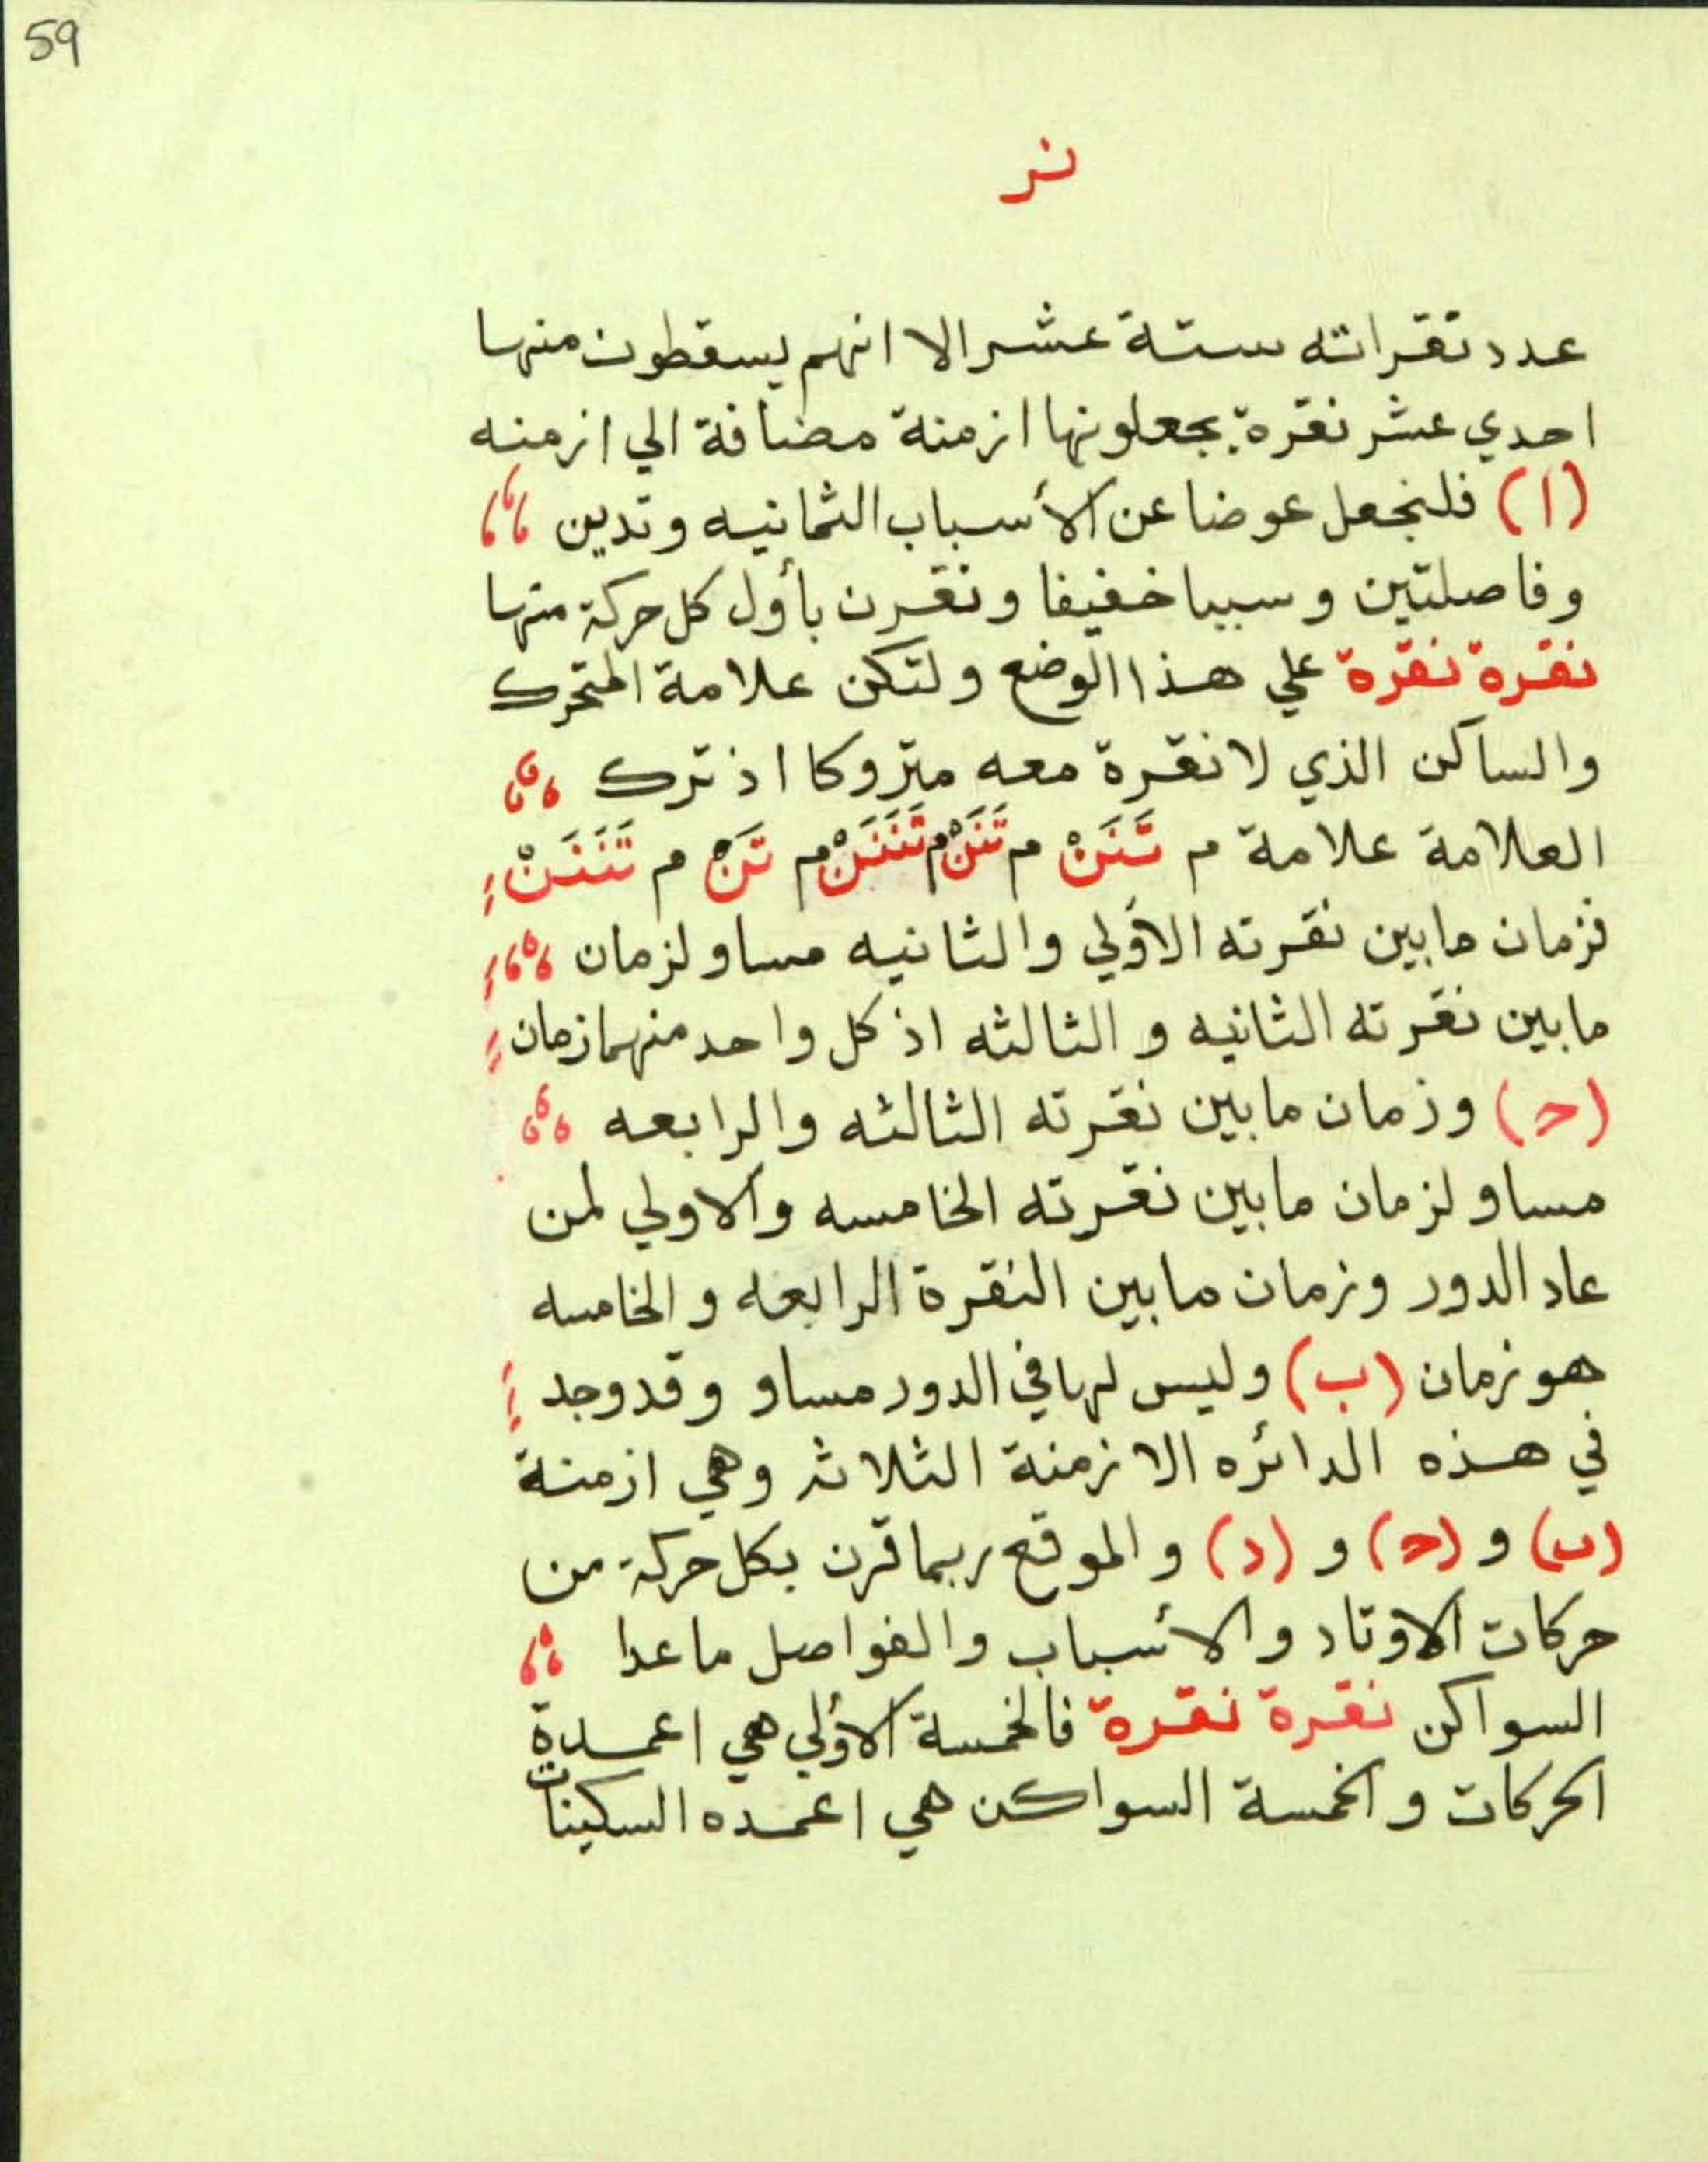 59
نر
عدد نقراته ستة عشر الا انهم يسقطون منها
احدي عشر نقرة يجعلونها ازمنة مضافة الي ازمنه
(ا) فلنجعل عوضا عن الأسباب الثمانيه وتدين
وفاصلتين وسببا خفيفا ونقرن بأول كل حركة منها
نقرة نقرة علي هذا الوضع ولتكن علامة المتحرك
والساكن الذي لا نقرة معه متروكا اذ ترك
العلامة علامة م تَنَنْ م تَنَنْ م تَنَنَنْ م تَنْ م تَنَنَنْ
فزمان مابين نقرته الأولي والثانيه مساو لزمان
مابين نقرته الثانيه و الثالثه اذ كل واحد منهما زمان
(ح) وزمان مابين نقرته الثالثه والرابعه
مساو لزمان مابين نقرته الخامسه والاولي لمن
عاد الدور وزمان مابين النقرة الرابعه والخامسه
هو زمان (ب) وليس لها في الدور مساو وقد وجد
في هذه الدائره الازمنة الثلاث وهي ازمنة
(ب) و (ح) و (د) والموقع ربما قرن بكل حركة من
حركات الاوتاد والأسباب والفواصل ماعدا
السواكن نقرة نقرة فالخمسة الأولي هي اعمدة
الحركات والخمسة السواكن هي اعمده السكينات